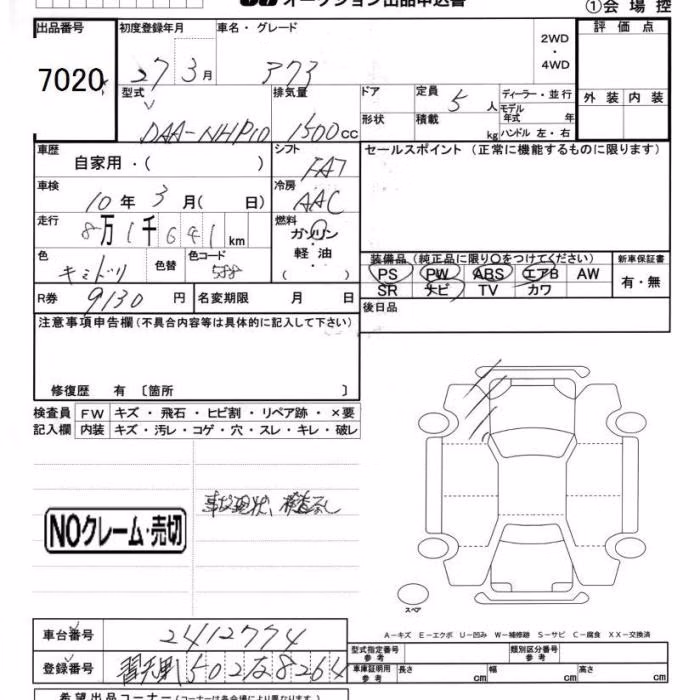 オークション出品申込書
①会場控
出品番号
7020
初度登録年月
27 3月
車名・グレード
アクア
2WD
・
4WD
評価点
外装 内装
型式
DAA-NHP10
排気量
1500cc
ドア
形状
定員
5人
積載
kg
ディーラー・並行
モデル年式 年
ハンドル 左・右
車歴
自家用・( )
シフト
FAT
セールスポイント (正常に機能するものに限ります)
車検
10年3月( 日)
冷房
AAC
走行
8万1千641km
燃料
ガソリン
軽油
( )
色
キミドリ
色替
色コード
588
装備品(純正品に限り○をつけてください)
PS PW ABS エアB AW
SR ナビ TV カワ
新車保証書
有・無
R券 9130円
名変期限 月 日
後日品
注意事項申告欄(不具合内容等は具体的に記入して下さい)
修復歴 有 〔箇所 〕
検査員記入欄
FW キズ・飛石・ヒビ割・リペア跡・×要
内装 キズ・汚レ・コゲ・穴・スレ・キレ・破レ
事故現状、検査なし
NOクレーム・売切
スペア
A－キズ E－エクボ U－凹み W－補修跡 S－サビ C－腐食 XX－交換済
車台番号
2412774
登録番号
502 8264
型式指定番号
参考
類別区分番号
参考
車庫証明用
参考
長さ cm
幅 cm
高さ cm
希望出品コーナー(コーナーは各会場により異なります。)